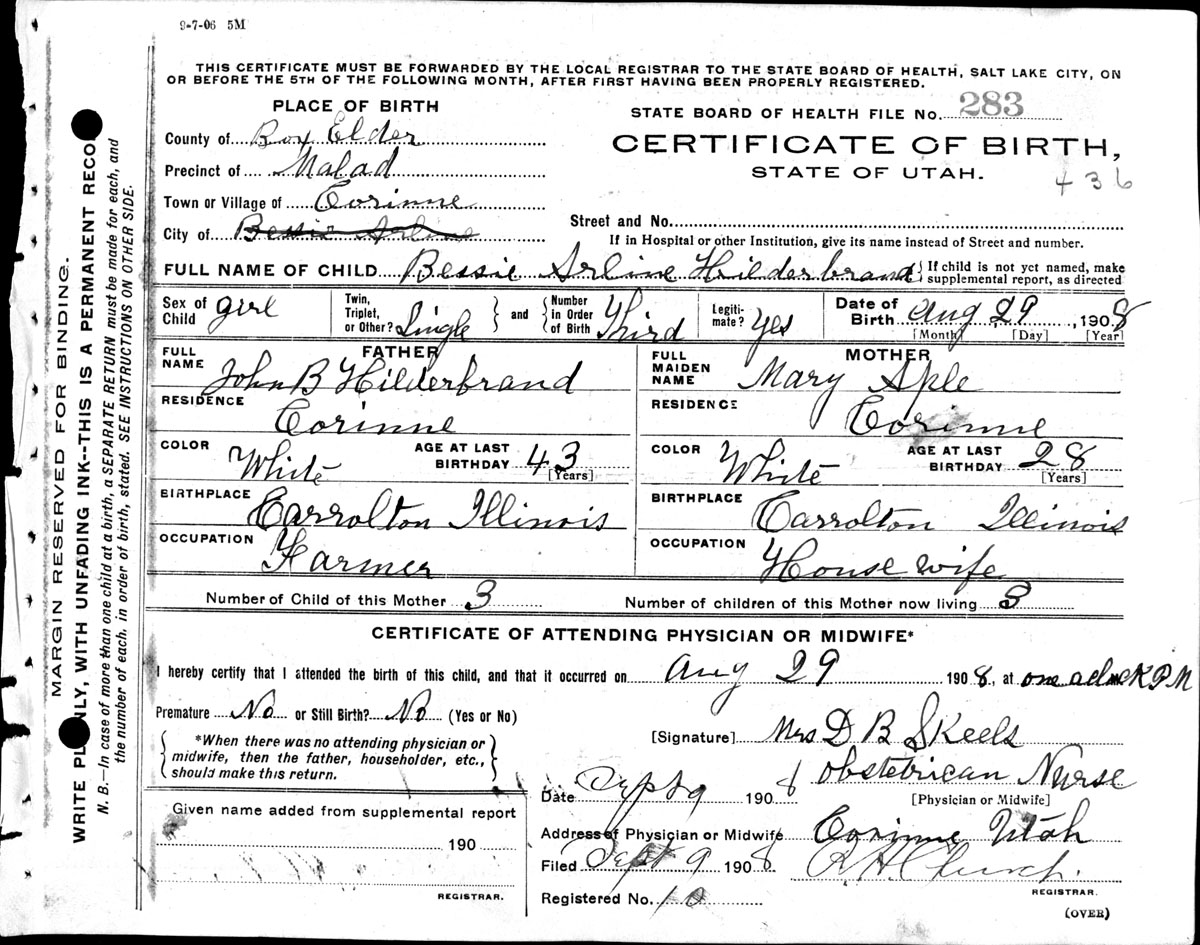 9-7-06 5M
THIS CERTIFICATE MUST BE FORWARDED BY THE LOCAL REGISTRAR TO THE STATE BOARD OF HEALTH, SALT LAKE CITY, ON
OR BEFORE THE 5TH OF THE FOLLOWING MONTH, AFTER FIRST HAVING BEEN PROPERLY REGISTERED.
PLACE OF BIRTH
STATE BOARD OF HEALTH FILE No. 283
County of Box Elder
CERTIFICATE OF BIRTH,
STATE OF UTAH.
436
Precinct of Malad
Town or Village of Corinne
City of Bessie Arline
Street and No.
If in Hospital or other Institution, give its name instead of Street and number.
FULL NAME OF CHILD Bessie Arline Hilderbrand { If child is not yet named, make
supplemental report, as directed
Sex of Child girl
Twin, Triplet, or Other? Single } and { Number in Order of Birth Third
Legitimate? Yes
Date of Birth Aug 29, 1908
[Month] [Day] [Year]
FATHER
FULL NAME John B Hilderbrand
RESIDENCE Corinne
COLOR White AGE AT LAST BIRTHDAY 43 [Years]
BIRTHPLACE Carrolton Illinois
OCCUPATION Farmer
MOTHER
FULL MAIDEN NAME Mary Aple
RESIDENCE Corinne
COLOR White AGE AT LAST BIRTHDAY 28 [Years]
BIRTHPLACE Carrolton Illinois
OCCUPATION House wife
Number of Child of this Mother 3 Number of children of this Mother now living 3
CERTIFICATE OF ATTENDING PHYSICIAN OR MIDWIFE*
I hereby certify that I attended the birth of this child, and that it occurred on Aug 29 1908, at one oclock P M
Premature No or Still Birth? No (Yes or No)
{ *When there was no attending physician or
midwife, then the father, householder, etc.,
should make this return. }
[Signature] Mrs D B Skeels
obstetrican Nurse
[Physician or Midwife]
Date Sept 9 1908
Given name added from supplemental report
190
REGISTRAR.
Address of Physician or Midwife Corinne Utah
Filed Sept 9 1908 Church.
REGISTRAR.
Registered No. 10
(OVER)
MARGIN RESERVED FOR BINDING.
WRITE PLAINLY, WITH UNFADING INK--THIS IS A PERMANENT RECO
N. B.—In case of more than one child at a birth, a SEPARATE RETURN must be made for each, and
the number of each, in order of birth, stated. SEE INSTRUCTIONS ON OTHER SIDE.